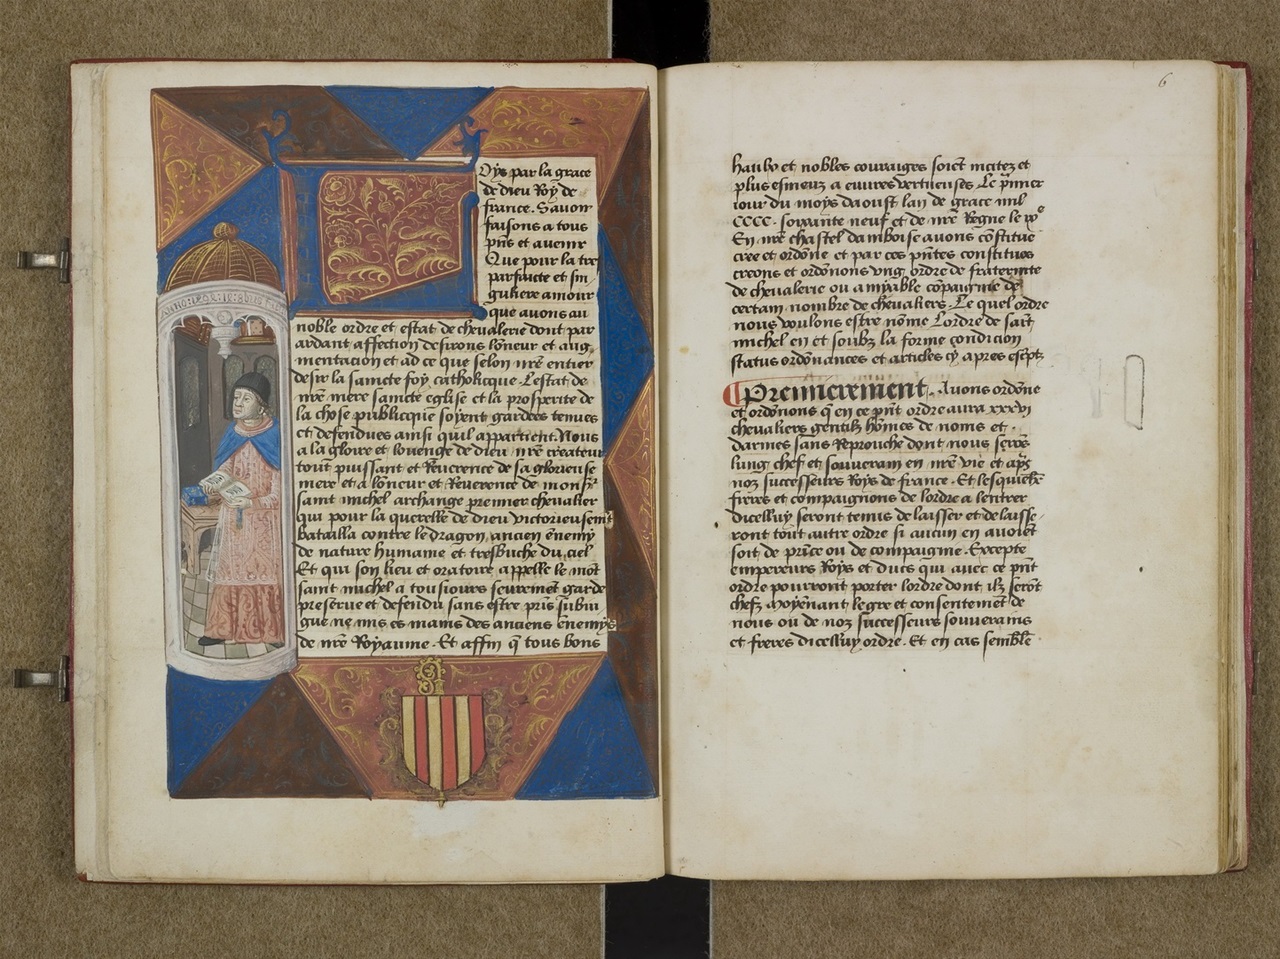 Oys par la grace
de dieu Roy de
france. Sauoir
faisons a tous
pñs et auenir
Que pour la tres
parfaicte et sin
guliere amour
que auons au
noble ordre et estat de cheualerie dont par
ardant affection desirons lõneur et aug
mentacion et ad ce que selon nr̃e entier
desir la saincte foy catholicque. Lestat de
nr̃e mere saincte eglise et la prosperite de
la chose publicque soyent gardees tenues
et defendues ainsi quil appartient. Nous
a la gloire et louenge de dieu nr̃e createur
tout puissant et Reuerence de sa glorieuse
mere et a lõneur et Reuerence de monsr̃
saint michel archange premier cheualier
qui pour la querelle de dieu victorieusemt̃
batailla contre le dragon, ancien ẽnemy
de nature humaine et tresbucha du ciel
Et qui son lieu et oratoire appelle le mõt
saint michel a tousiours seuremẽt garde
preserue et defendu sans estre pris subiu
gue ne mis es mains des anciens ẽnemys
de nr̃e Royaume. Et affin q̃ tous bons
6
haulx et nobles couraiges soiẽt incitez et
plus esmeuz a euures vertueuses Le p̃mier
iour du moys daoust lan de grace mil
CCCC. soixante neuf et de nr̃e Regne le ixe
En nr̃e chastel damboise auons cõstitue
cree et ordõne et par ces pñtes constituõs
creons et ordõnons vng ordre de fraternite
de cheualerie ou amyable cõpaignie de
certain nombre de cheualiers. Le quel ordre
nous voulons estre nõme Lordre de saĩt
michel en et soubz la forme condicion
status ordõnances et articles cy apres escp̃tz
Premierement. Auons ordõne
et ordõnons q̃ en ce pñt ordre aura xxxvi
cheualiers gentilz hõmes de noms et
darmes sans Reprouche dont nous serõs
lung chef et souuerain en nr̃e vie et ap̃s
noz successeurs Roys de france. Et lesquielz
freres et compaignons de lordre a lentrer
dicelluy seront tenus de laisser et de laisse
ront tout autre ordre si aucun en auoiẽt
soit de prĩce ou de compaignie. Excepte
empereurs Roys et ducs qui auec ce pñt
ordre pourront porter lordre dont ilz serõt
chefz moyẽnant le gre et consentemẽt de
nous ou de noz successeurs souuerains
et freres dicelluy ordre. Et en cas semble